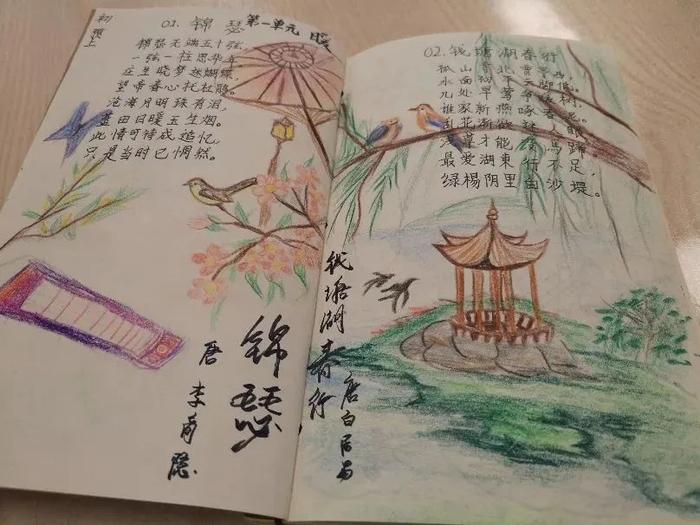 01. 锦瑟
第一单元
锦瑟无端五十弦,
一弦一柱思华年。
庄生晓梦迷蝴蝶,
望帝春心托杜鹃。
沧海月明珠有泪,
蓝田日暖玉生烟。
此情可待成追忆,
只是当时已惘然。
锦瑟
唐 李商隐
02. 钱塘湖春行
孤山寺北贾亭西,
水面初平云脚低。
几处早莺争暖树,
谁家新燕啄春泥。
乱花渐欲迷人眼,
浅草才能没马蹄。
最爱湖東行不足,
绿杨阴里白沙堤。
钱塘湖春行
唐白居易